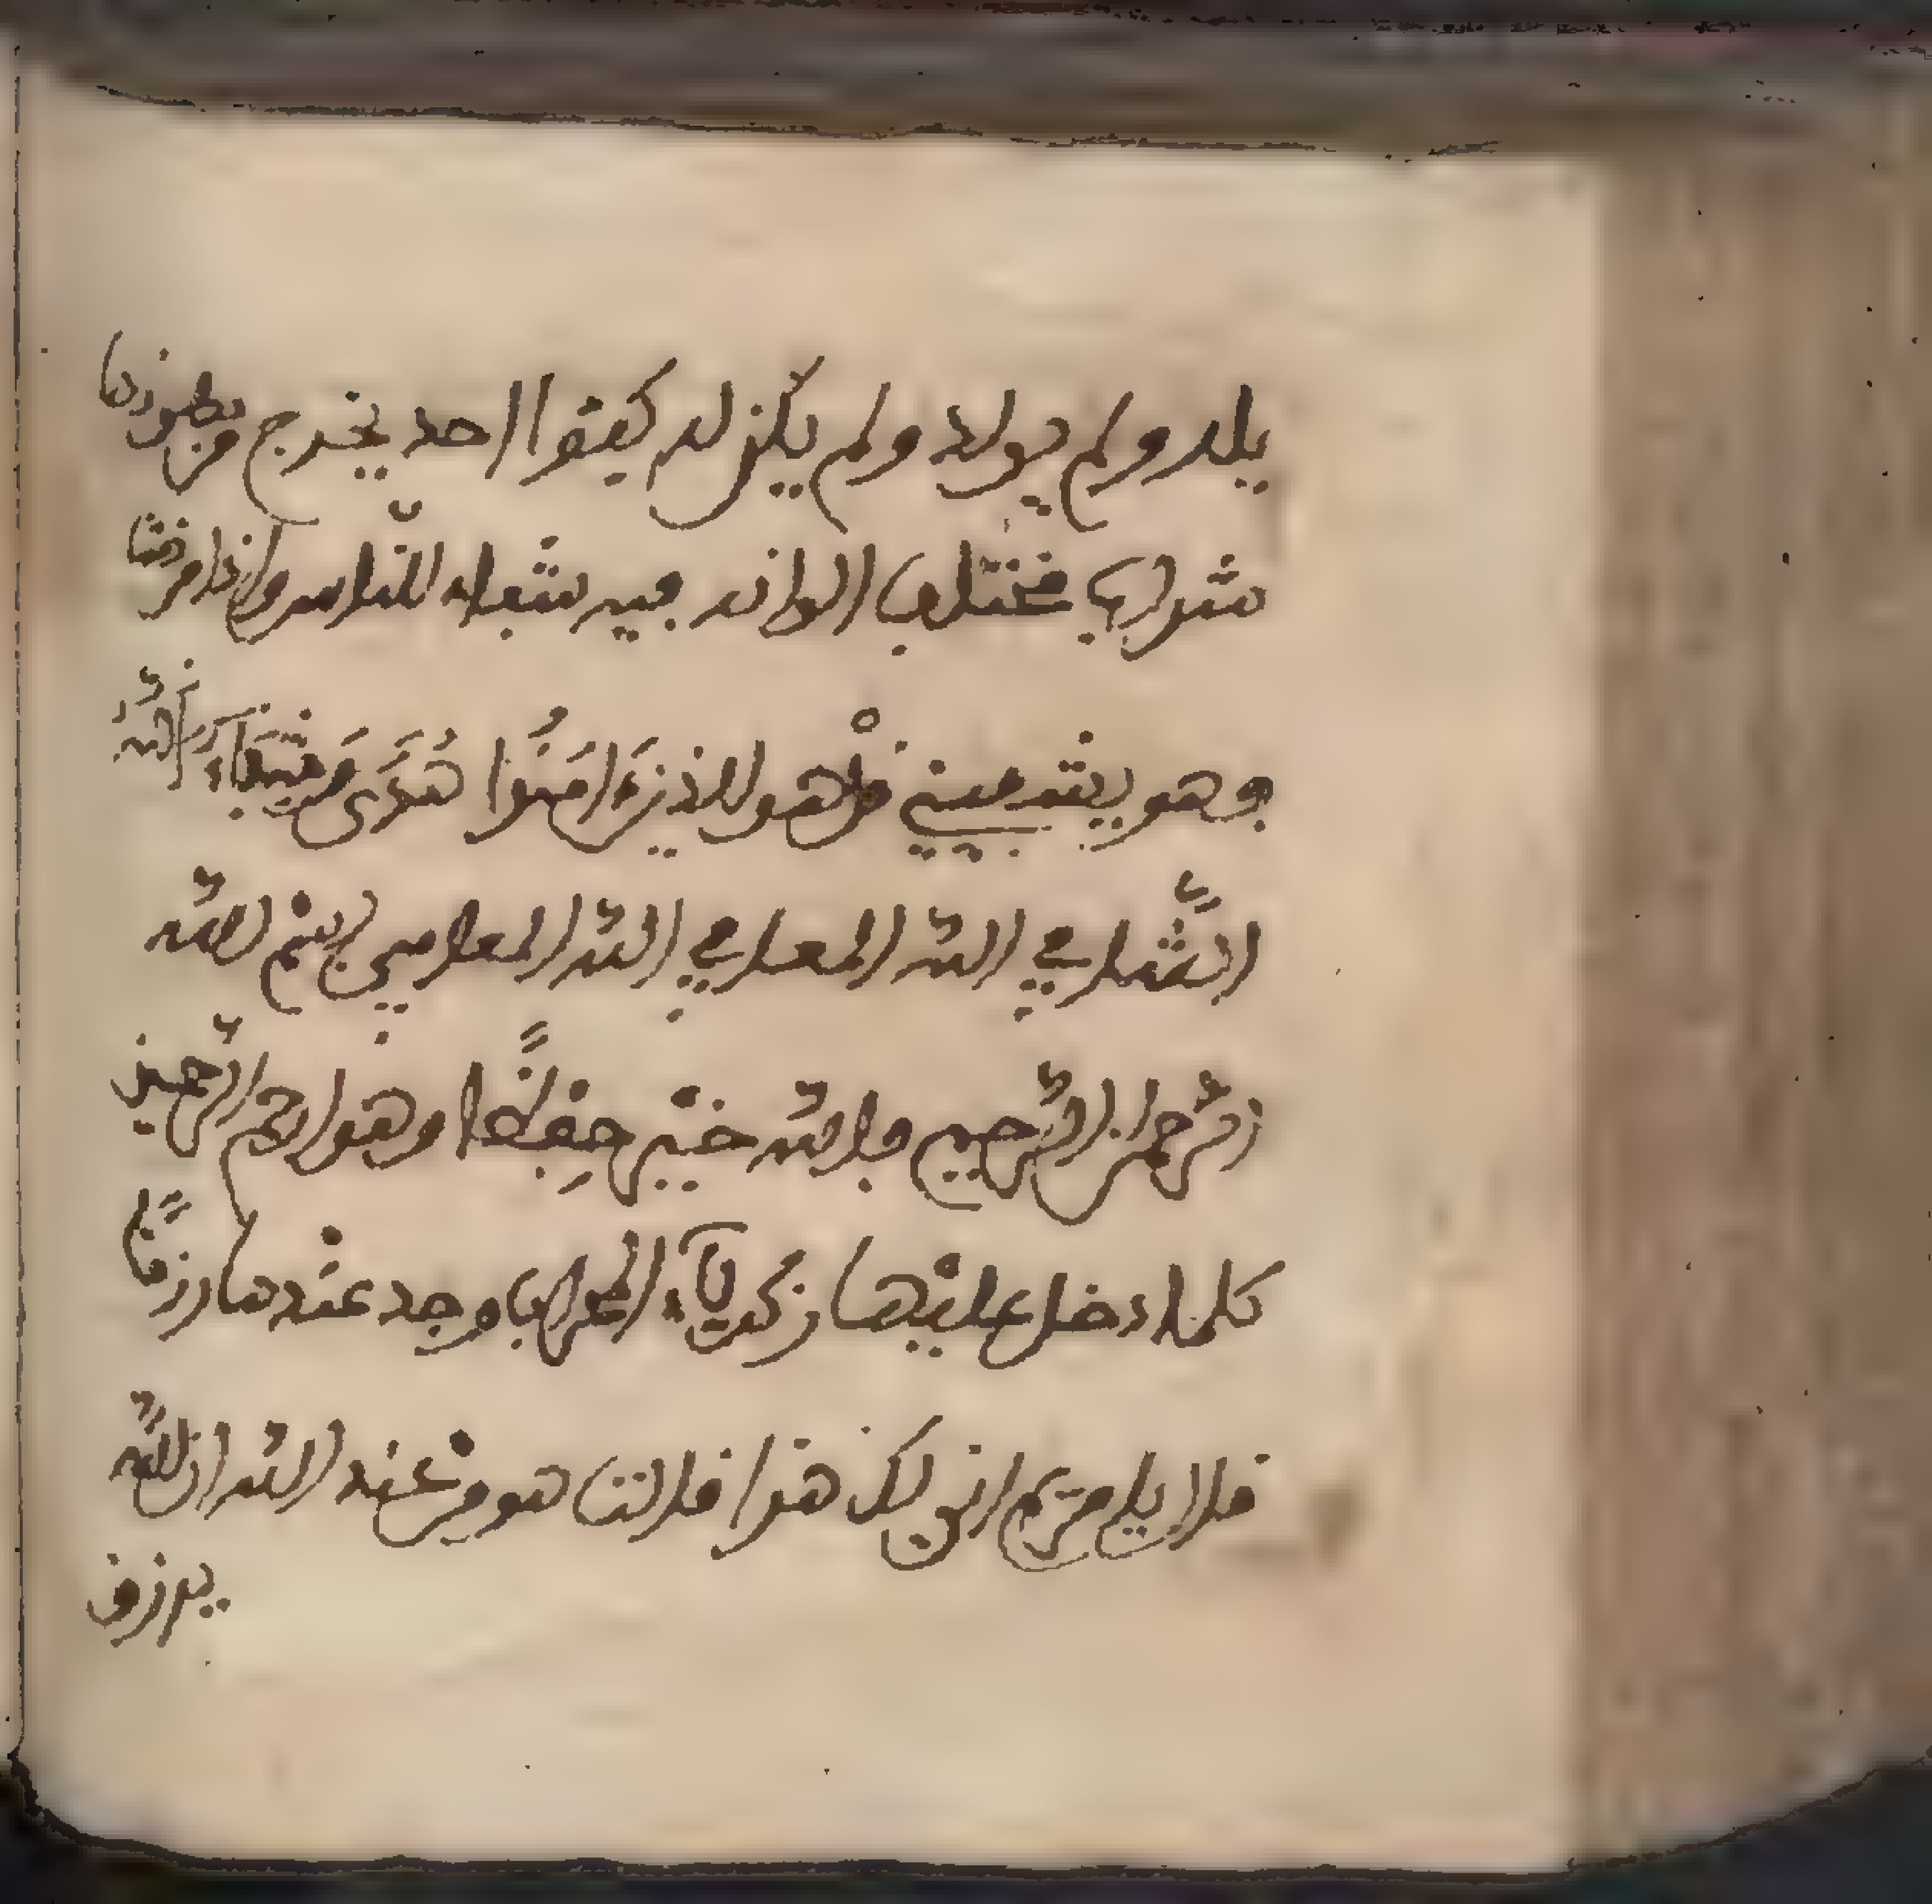 يلد ولم يولد ولم يكن له كفؤا احد يخرج من بطونها
شراب مختلف الوانه فيه شفاء للناس واذا مرضت
فهو يشفيني قل هو للذين ءَامَنُوا هُدًى وَشِفَاء
الشَّافي الله المعافي الله المعافي بسم الله
الرحمن الرحيم فالله خيْر حفِظًا وهو ارحم الرحمين
كلما دخل عليْها زكرياء المحراب وجد عنْدها رزقًا
قال يا مريم انى لك هذا قالت هو منْ عند الله ان الله
يرزق